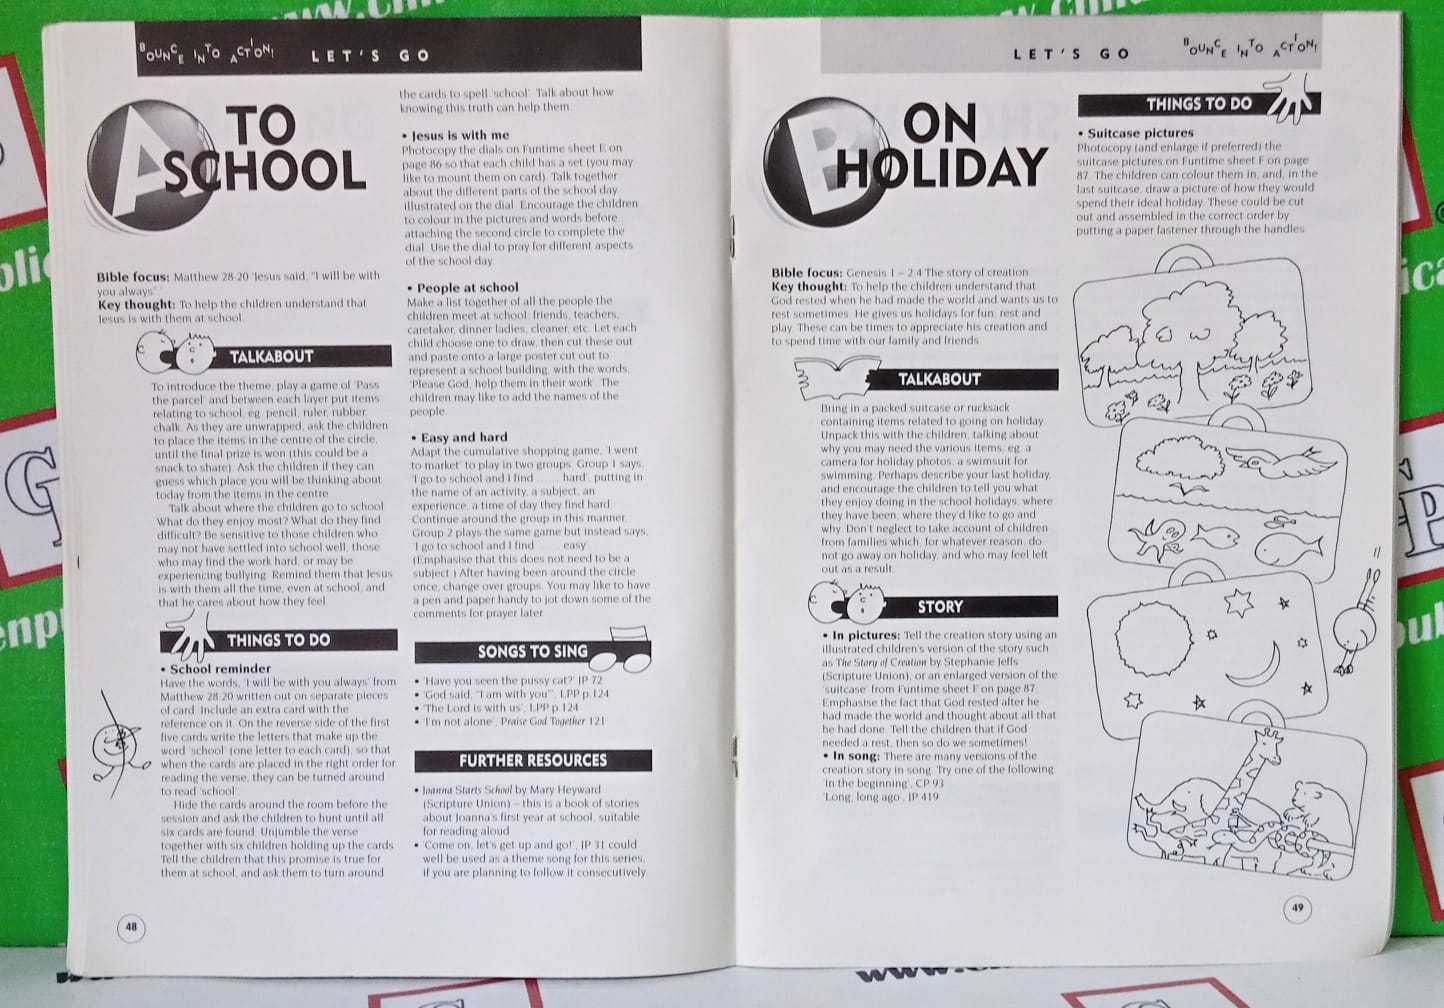 BOUNCE INTO ACTION!
LET'S GO
A TO
SCHOOL
Bible focus: Matthew 28:20 'Jesus said, "I will be with
you always".'
Key thought: To help the children understand that
Jesus is with them at school.
TALKABOUT
To introduce the theme, play a game of 'Pass
the parcel' and between each layer put items
relating to school, eg. pencil, ruler, rubber,
chalk. As they are unwrapped, ask the children
to place the items in the centre of the circle,
until the final prize is won (this could be a
snack to share). Ask the children if they can
guess which place you will be thinking about
today from the items in the centre.
Talk about where the children go to school.
What do they enjoy most? What do they find
difficult? Be sensitive to those children who
may not have settled into school well, those
who may find the work hard, or may be
experiencing bullying. Remind them that Jesus
is with them all the time, even at school, and
that he cares about how they feel.
THINGS TO DO
• School reminder
Have the words, 'I will be with you always' from
Matthew 28:20 written out on separate pieces
of card. Include an extra card with the
reference on it. On the reverse side of the first
five cards write the letters that make up the
word 'school' (one letter to each card), so that
when the cards are placed in the right order for
reading the verse, they can be turned around
to read 'school'.
Hide the cards around the room before the
session and ask the children to hunt until all
six cards are found. Unjumble the verse
together with six children holding up the cards.
Tell the children that this promise is true for
them at school, and ask them to turn around
the cards to spell 'school'. Talk about how
knowing this truth can help them.
• Jesus is with me
Photocopy the dials on Funtime sheet E on
page 86 so that each child has a set (you may
like to mount them on card). Talk together
about the different parts of the school day
illustrated on the dial. Encourage the children
to colour in the pictures and words before
attaching the second circle to complete the
dial. Use the dial to pray for different aspects
of the school day.
• People at school
Make a list together of all the people the
children meet at school: friends, teachers,
caretaker, dinner ladies, cleaner, etc. Let each
child choose one to draw, then cut these out
and paste onto a large poster cut out to
represent a school building, with the words,
'Please God, help them in their work'. The
children may like to add the names of the
people.
• Easy and hard
Adapt the cumulative shopping game, 'I went
to market' to play in two groups. Group 1 says,
'I go to school and I find ....... hard', putting in
the name of an activity, a subject, an
experience, a time of day they find hard.
Continue around the group in this manner.
Group 2 plays the same game but instead says,
'I go to school and I find ....... easy'.
(Emphasise that this does not need to be a
subject.) After having been around the circle
once, change over groups. You may like to have
a pen and paper handy to jot down some of the
comments for prayer later.
SONGS TO SING
• 'Have you seen the pussy cat?' JP 72
• 'God said, "I am with you"', LPP p.124
• 'The Lord is with us', LPP p.124
• 'I'm not alone', Praise God Together 121
FURTHER RESOURCES
• Joanna Starts School by Mary Heyward
(Scripture Union) – this is a book of stories
about Joanna's first year at school, suitable
for reading aloud.
• 'Come on, let's get up and go!', JP 31 could
well be used as a theme song for this series,
if you are planning to follow it consecutively.
48
LET'S GO
BOUNCE INTO ACTION!
B ON
HOLIDAY
Bible focus: Genesis 1 – 2:4 The story of creation.
Key thought: To help the children understand that
God rested when he had made the world and wants us to
rest sometimes. He gives us holidays for fun, rest and
play. These can be times to appreciate his creation and
to spend time with our family and friends.
TALKABOUT
Bring in a packed suitcase or rucksack
containing items related to going on holiday.
Unpack this with the children, talking about
why you may need the various items, eg. a
camera for holiday photos, a swimsuit for
swimming. Perhaps describe your last holiday,
and encourage the children to tell you what
they enjoy doing in the school holidays, where
they have been, where they'd like to go and
why. Don't neglect to take account of children
from families which, for whatever reason, do
not go away on holiday, and who may feel left
out as a result.
STORY
• In pictures: Tell the creation story using an
illustrated children's version of the story such
as The Story of Creation by Stephanie Jeffs
(Scripture Union), or an enlarged version of the
'suitcase' from Funtime sheet F on page 87.
Emphasise the fact that God rested after he
had made the world and thought about all that
he had done. Tell the children that if God
needed a rest, then so do we sometimes!
• In song: There are many versions of the
creation story in song. Try one of the following:
'In the beginning', CP 93
'Long, long ago', JP 419
THINGS TO DO
• Suitcase pictures
Photocopy (and enlarge if preferred) the
suitcase pictures on Funtime sheet F on page
87. The children can colour them in, and, in the
last suitcase, draw a picture of how they would
spend their ideal holiday. These could be cut
out and assembled in the correct order by
putting a paper fastener through the handles.
49